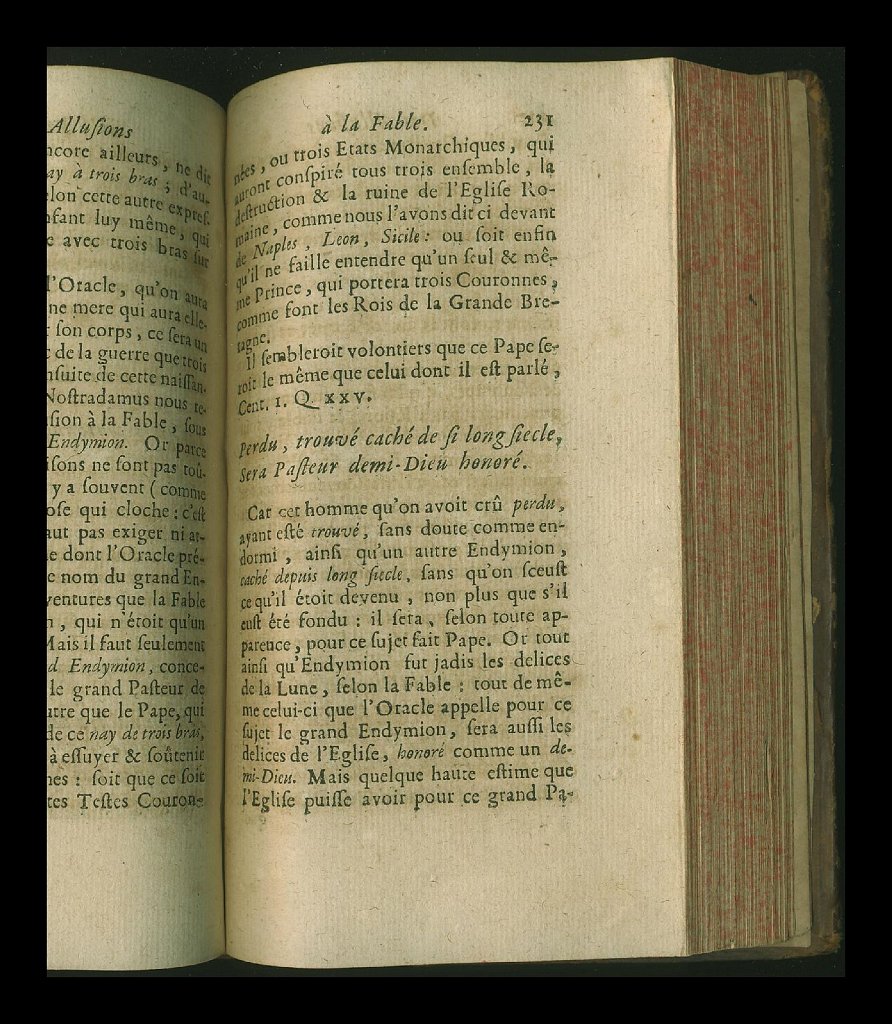 Alluſions
ncore ailleurs, ne dit
ay à trois bras; d'au-
lon cette autre expreſ-
nfant luy même, qui
e avec trois bras ſur
l'Oracle, qu'on aura
ne mere qui aura elle-
ſon corps, ce ſera un
de la guerre que trois
nſuite de cette naiſſan-
Noſtradamus nous re-
ſion à la Fable, ſous
Endymion. Or parce
iſons ne ſont pas toû-
y a ſouvent (comme
oſe qui cloche: c'eſt
aut pas exiger ni at-
e dont l'Oracle pré-
e nom du grand En-
ventures que la Fable
n, qui n'étoit qu'un
Mais il faut ſeulement
d Endymion, conce-
le grand Paſteur de
utre que le Pape, qui
de ce nay de trois bras,
à eſſuyer & ſoûtenir
nes: ſoit que ce ſoit
tes Teſtes Couron-
à la Fable. 231
nées, ou trois Etats Monarchiques, qui
auront conſpiré tous trois enſemble, la
deſtruction & la ruine de l'Egliſe Ro-
maine, comme nous l'avons dit ci devant
de Naples, Leon, Sicile: ou ſoit enfin
qu'il ne faille entendre qu'un ſeul & mê-
me Prince, qui portera trois Couronnes,
comme ſont les Rois de la Grande Bre-
tagne.
Il ſembleroit volontiers que ce Pape ſe-
roit le même que celui dont il eſt parlé,
Cent. 1. Q. XXV.
Perdu, trouvé caché de ſi long ſiecle,
Sera Paſteur demi-Dieu honoré.
Car cet homme qu'on avoit crû perdu,
ayant eſté trouvé, ſans doute comme en-
dormi, ainſi qu'un autre Endymion,
caché depuis long ſiecle, ſans qu'on ſceuſt
ce qu'il étoit devenu, non plus que s'il
euſt été fondu: il ſera, ſelon toute ap-
parence, pour ce ſujet fait Pape. Or tout
ainſi qu'Endymion fut jadis les delices
de la Lune, ſelon la Fable: tout de mê-
me celui-ci que l'Oracle appelle pour ce
ſujet le grand Endymion, ſera auſſi les
delices de l'Egliſe, honoré comme un de-
mi-Dieu. Mais quelque haute eſtime que
l'Egliſe puiſſe avoir pour ce grand Pa-